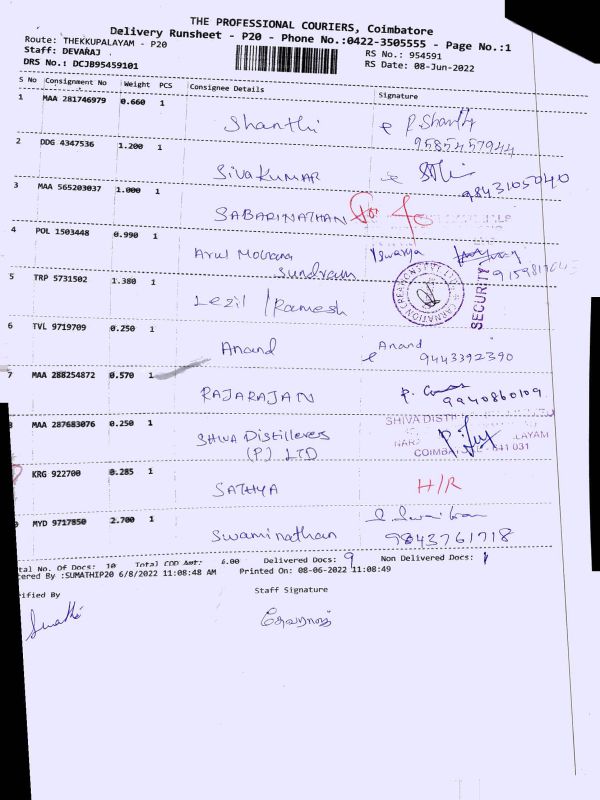 THE PROFESSIONAL COURIERS, Coimbatore
Delivery Runsheet - P20 - Phone No.:0422-3505555 - Page No.:1
Route: THEKKUPALAYAM - P20
RS No.: 954591
Staff: DEVARAJ
RS Date: 08-Jun-2022
DRS No.: DCJB95459101
S No Consignment No Weight PCS Consignee Details Signature
1 MAA 281746979 0.660 1 Shanthi P. Shanthi
9585457944
2 DDG 4347536 1.200 1 SIVAKUMAR
9843105040
3 MAA 565203037 1.000 1 SABARINATHAN for
4 POL 1503448 0.990 1 Arul
Sundram
SECURITY
5 TRP 5731502 1.380 1 Lezil / Ramesh
6 TVL 9719709 0.250 1 Anand Anand
9443392390
7 MAA 288254872 0.570 1 RAJARAJAN
9940860109
MAA 287683076 0.250 1 SHIVA Distilleres
(P) LTD
SHIVA DISTIL
LAYAM
641 031
KRG 922700 0.285 1 SATHYA H/R
MYD 9717850 2.700 1 Swaminathan
9843761718
tal No. Of Docs: 10 Total COD Amt: 6.00 Delivered Docs: 9 Non Delivered Docs: 1
tered By :SUMATHIP20 6/8/2022 11:08:48 AM Printed On: 08-06-2022 11:08:49
ified By Staff Signature